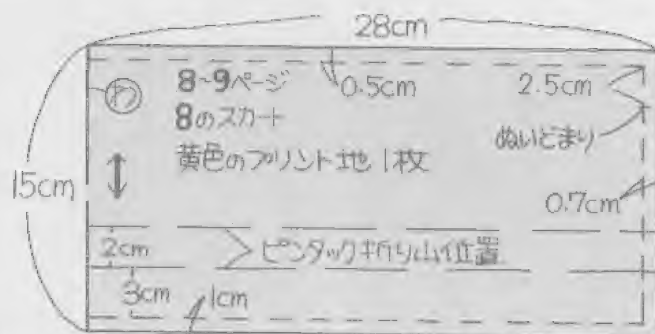 28cm
わ
8~9ページ
0.5cm
2.5cm
8のスカート
ぬいどまり
黄色のプリント地1枚
15cm
0.7cm
2cm
ピンタック折り山位置
3cm
1cm